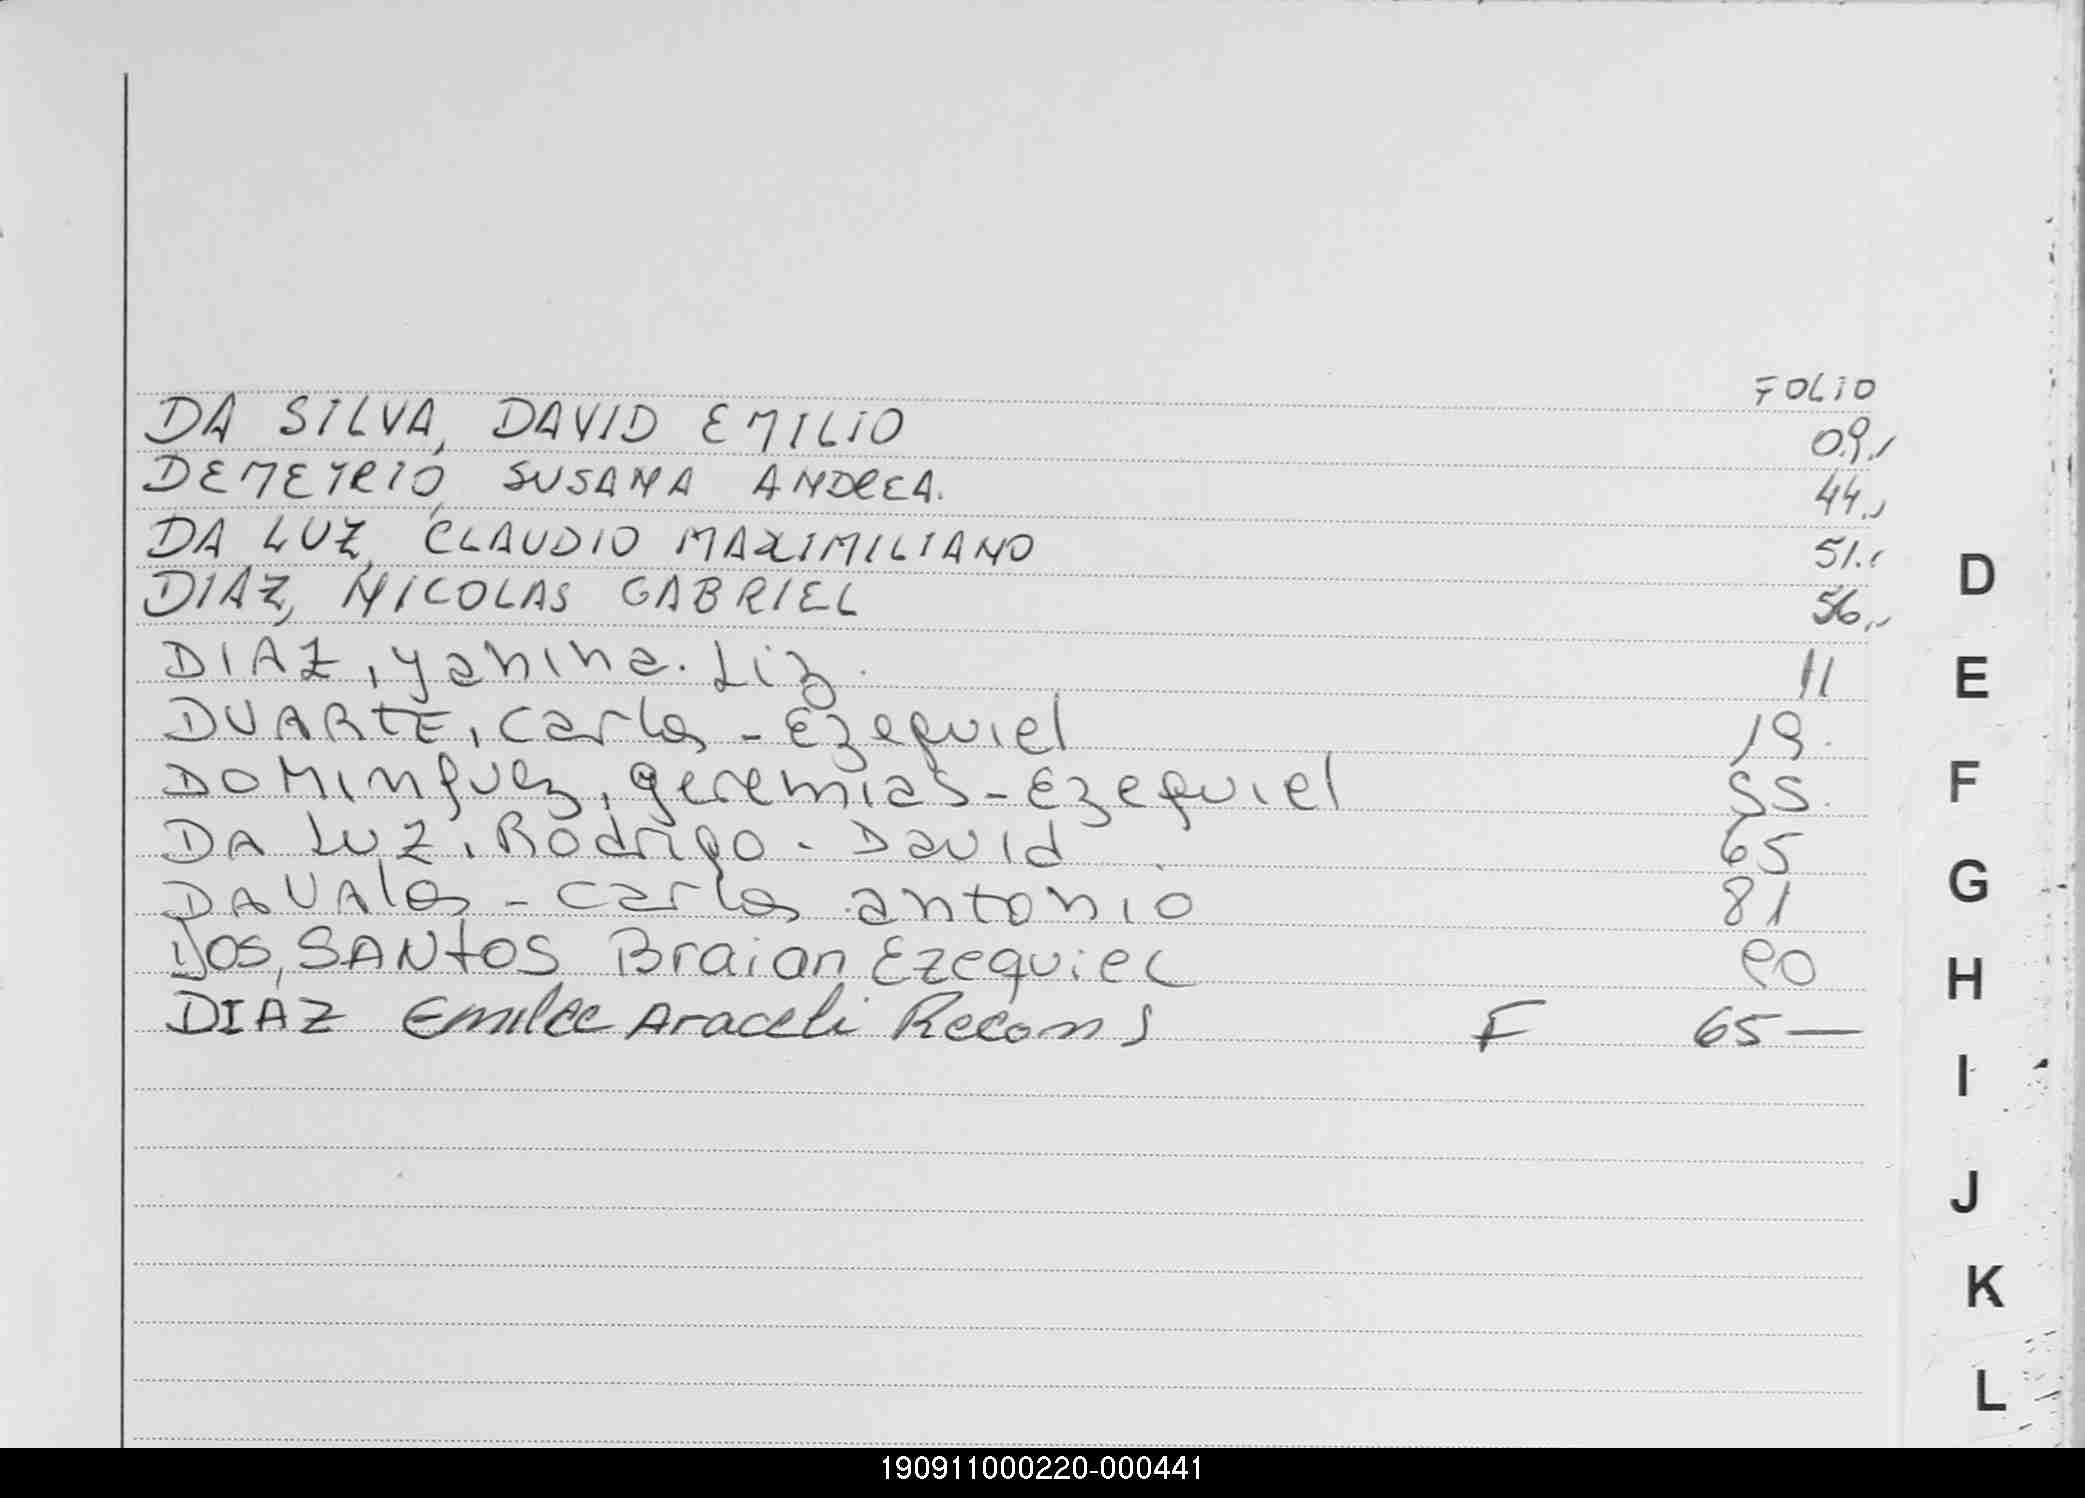 FOLIO
DA SILVA, DAVID EMILIO 09.,
DEMETRIO, SUSANA ANDREA. 44.,
DA LUZ, CLAUDIO MAXIMILIANO 51.,
DIAZ, NICOLAS GABRIEL 56.,
DIAZ, Yanina. Liz. 11
DUARTE, Carlos - Ezequiel 19.
DOMinguez, geremias - Ezequiel 55.
DA Luz, Rodrigo. David 65
DAVAlos - Carlos antonio 81
DOS, SANtOS Braian Ezequiel 90
DIAZ Emilce Araceli F 65 —
D
E
F
G
H
I
J
K
L
190911000220-000441